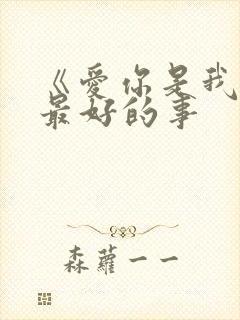 《爱你是我
最好的事
森萝一一